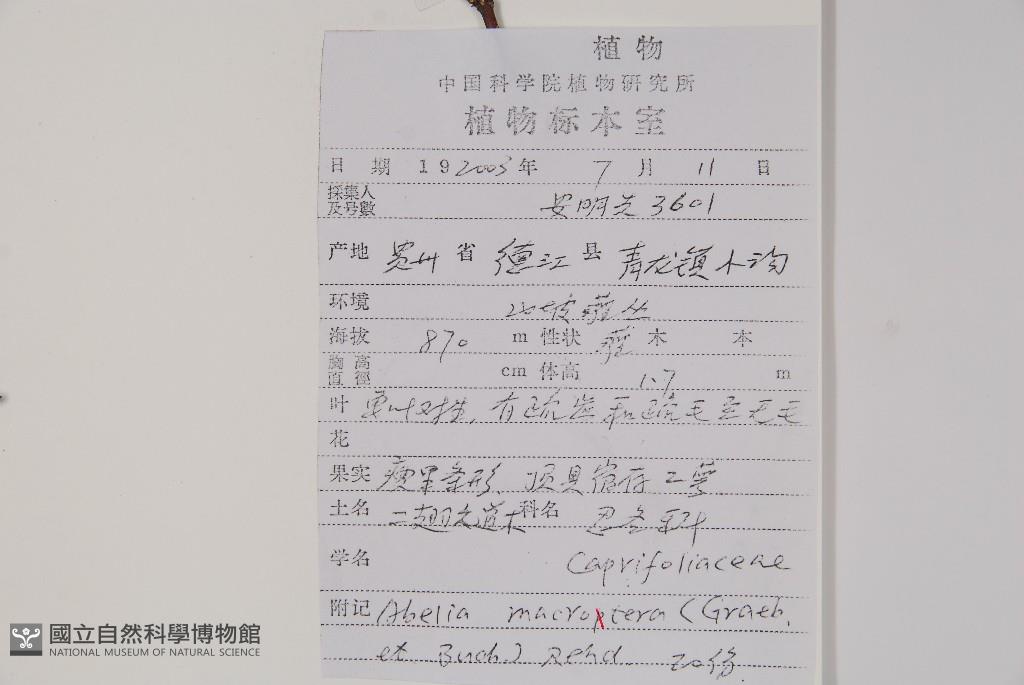 植物
中国科学院植物研究所
植物标本室
日 期 192003年 7 月 11 日
採集人及号數 安明先 3601
产地 贵州 省 德江 县 青龙镇木沟
环境 山坡灌丛
海拔 870 m 性状 灌 木 本
胸高直徑 cm 体高 1.7 m
叶 单叶对生, 有疏齿和疏毛至无毛
花
果实 瘦果条形、顶具宿存二萼
土名 二翅六道木 科名 忍冬科
学名 Caprifoliaceae
附记 Abelia macroptera (Graeb.
et Buch.) Rehd.
國立自然科學博物館
NATIONAL MUSEUM OF NATURAL SCIENCE